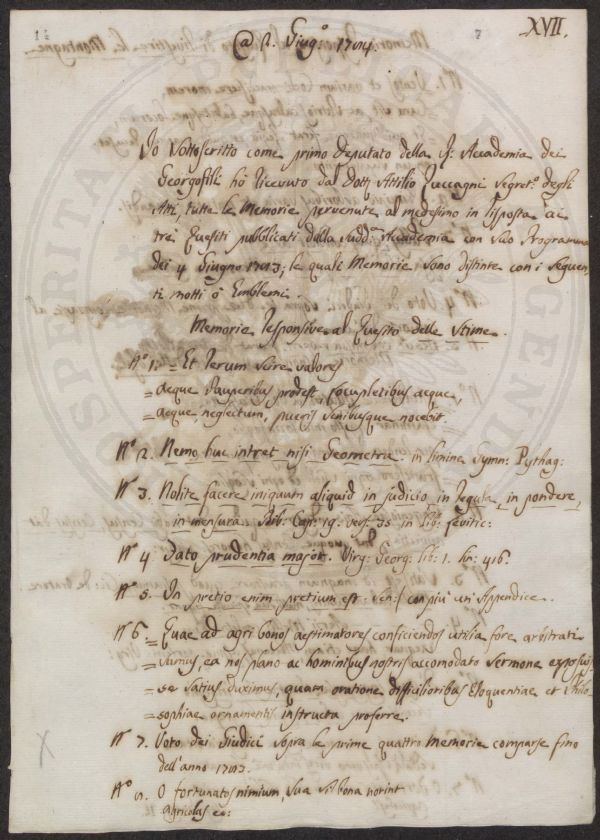 XVII.
7
@ 2. Giug.º 1784.
Io Sottoscritto come primo Deputato della R: Accademia dei
Georgofili hò ricevuto dal Dott. Attilio Zuccagni Segret.º degli
Atti, tutte le Memorie pervenute al medesimo in risposta ai
trè Quesiti pubblicati dalla Sudd.ª Accademia con suo Programma
dei 4 Giugno 1783; le quali Memorie sono distinte con i seguen-
ti motti ò Emblemi.
Memorie responsive al Quesito delle Stime.
Nº 1. = Et rerum scire valores
= aeque Pauperibus prodest, locupletibus aeque,
= aeque, neglectum, pueris senibusque nocebit.
Nº 2. Nemo huc intret nisi Geometra. in limine Symn: Pythag:
Nº 3. Nolite facere iniquum aliquid in judicio in regula, in pondere,
in mensura. Bib: Cap: 19. vers. 35 in Lib: Levitic:
Nº 4 Dato prudentia major. Virg: Georg: lib: 1. lin: 416.
Nº 5. In pretio enim pretium est. con più un'Appendice.
Nº 6. = Quae ad agri bonos aestimatores conficiendos utilia fore arbitrati
= sumus, ea nos plano ac hominibus nostris accomodato sermone exposuis-
= se satius duximus, quam oratione difficilioribus Eloquentiae et Philo
= sophiae ornamentis instructa proferre.
Nº 7. Voto dei Giudici sopra le prime quattro Memorie comparse fino
dell'anno 1783.
Nº 8. O fortunatos nimium, sua si bona norint
agricolas &c: